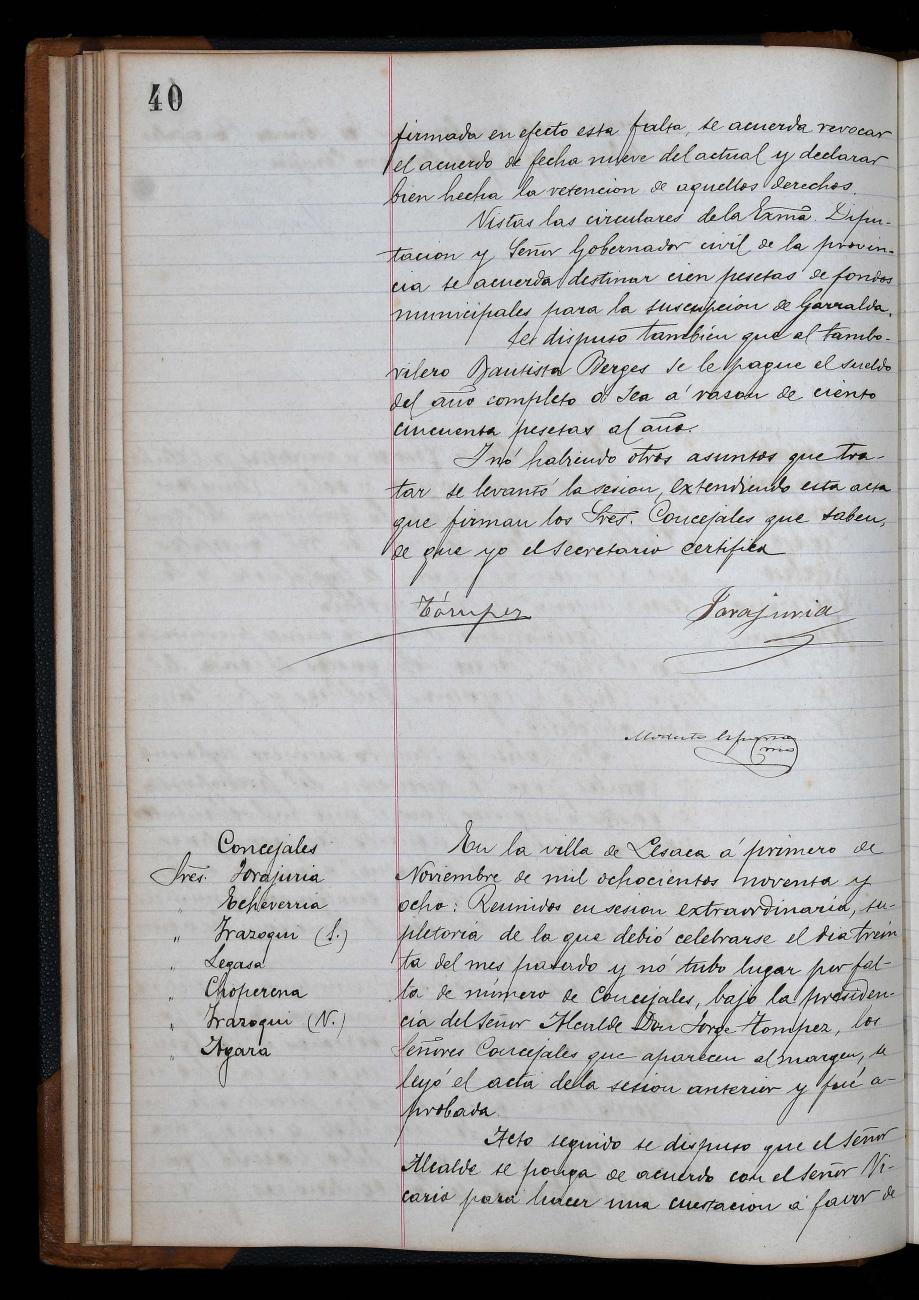 40
firmada en efecto esta falta, se acuerda revocar
el acuerdo de fecha nueve del actual y declarar
bien hecha la retencion de aquellos derechos.
Vistas las circulares de la Exma. Dipu-
tacion y Señor Gobernador civil de la provin-
cia se acuerda destinar cien pesetas de fondos
municipales para la suscripcion de Garralda.
Se dispuso tambien que al tambo-
rilero Bautista Berges se le pague el sueldo
del año completo ó sea á rason de ciento
cincuenta pesetas al año.
I nó habiendo otros asuntos que tra-
tar se levantó la sesion, extendiendo esta acta
que firman los Sres. Concejales que saben,
de que yo el Secretario certifica
Tómpez Iorajuria
Modesto
Concejales
Sres. Iorajuria
" Echeverria
" Irazoqui (S.)
" Legasa
" Choperena
" Irazoqui (N.)
" Agara
En la villa de Lesaca á primero de
Noviembre de mil ochocientos noventa y
ocho: Reunidos en sesion extraordinaria, su-
pletoria de la que debió celebrarse el dia trein
ta del mes pasado y nó tubo lugar por fal-
ta de número de Concejales, bajo la presiden-
cia del Señor Alcalde Don Jorge Tompez, los
Señores Concejales que aparecen al margen, se
leyó el acta de la sesion anterior y fué a-
probada.
Acto seguido se dispuso que el Señor
Alcalde se ponga de acuerdo con el Señor Vi-
cario para hacer una cuestacion á favor de